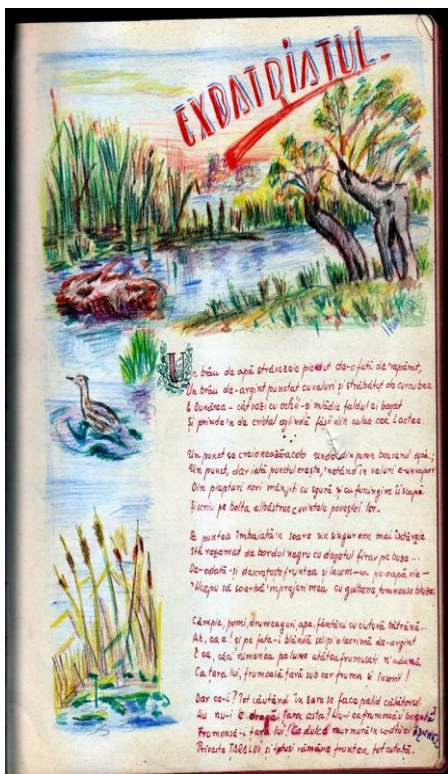 EXPATRIATUL.
Un brâu de apă străvezie pierdut de-o fată de 'mpărat,
Un brâu de-argint punctat cu valuri și străbătut de curcubee
E Dunărea - cât vezi cu ochii-și mlădie faldul ei bogat
Și prinde'n de cristal oglindă fâșii din calea cea Lactee.
Un punct se creionează acolo unde din pumn bea cerul apă;
Un punct, dar iată punctul crește, înotând în valuri e-un vapor
Din piepturi nori mânjiți cu sgură și cu funingine îi scapă
Și scriu pe bolta albăstrue cuvintele poveștei lor.
Pe puntea îmbăiată'n soare un singur om mai întârzie
Stă rezemat de bordul negru cu degetul firav pe buze...
De-odată-și descrețește fruntea și lacom-ca pe-o apă vie-
'Ncepu să soarbă 'mprejurimea cu galbene, tomnoase bluze.
Câmpie, pomi, drumeaguri, ape, fântâni cu ciutură bătrână...
Ah, ea e! și pe fata-i blândă sclipi o lacrimă de-argint
E ea, căci nimenea pe lume atâtea frumuseți n'adună
Ca țara lui, frumoasă țară sub cer frumos și
Dar ce-i? Tot căutând în zare se face palid călătorul.
Au nu-i e dragă țara asta? Nu-i ea frumoasă și bogată?
Frumoasă-i țara lui! Ce dulce murmură în codru-i
Privește ȚARA LUI și totuși rămâne fruntea tot